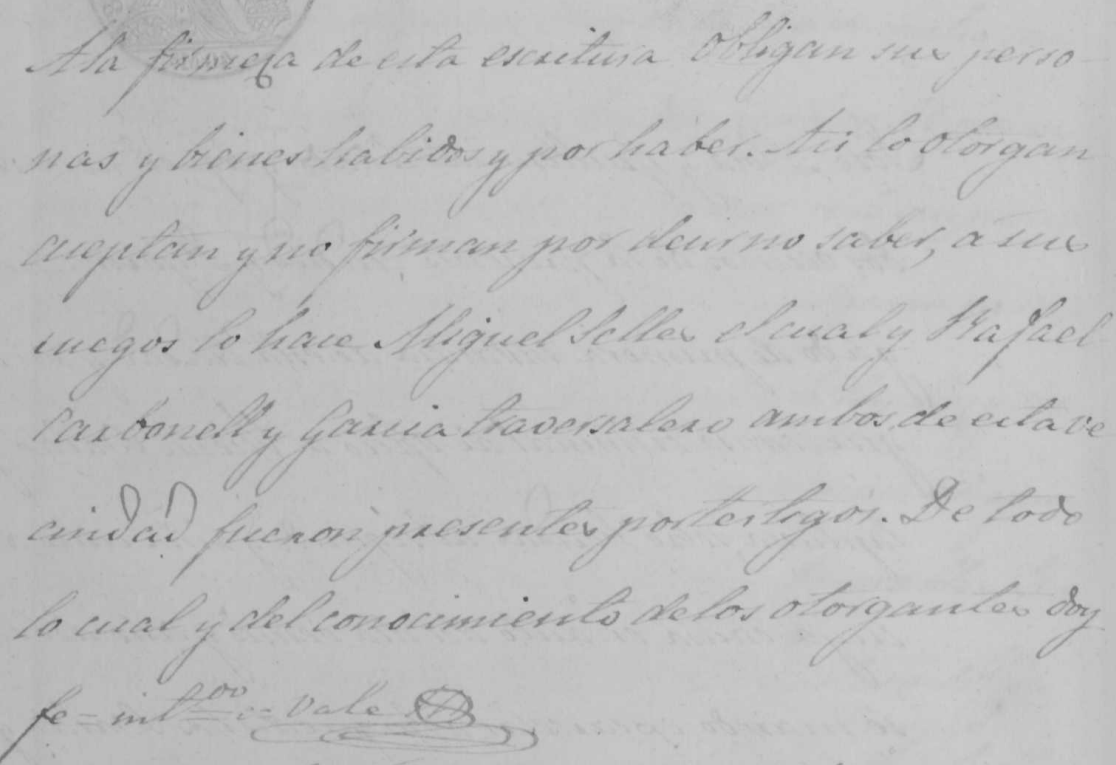 Ala firmeza de esta escritura obligan sus perso-
nas y bienes habidos y por haber. Asi lo otorgan
aceptan y no firman por decir no saber, a sus
ruegos lo hace Miguel Selles el cual y Rafael
Carbonell y Garcia traversalero ambos de esta ve
cindad fueron presentes por testigos. De todo
lo cual y del conocimiento de los otorgantes doy
fe = = vale